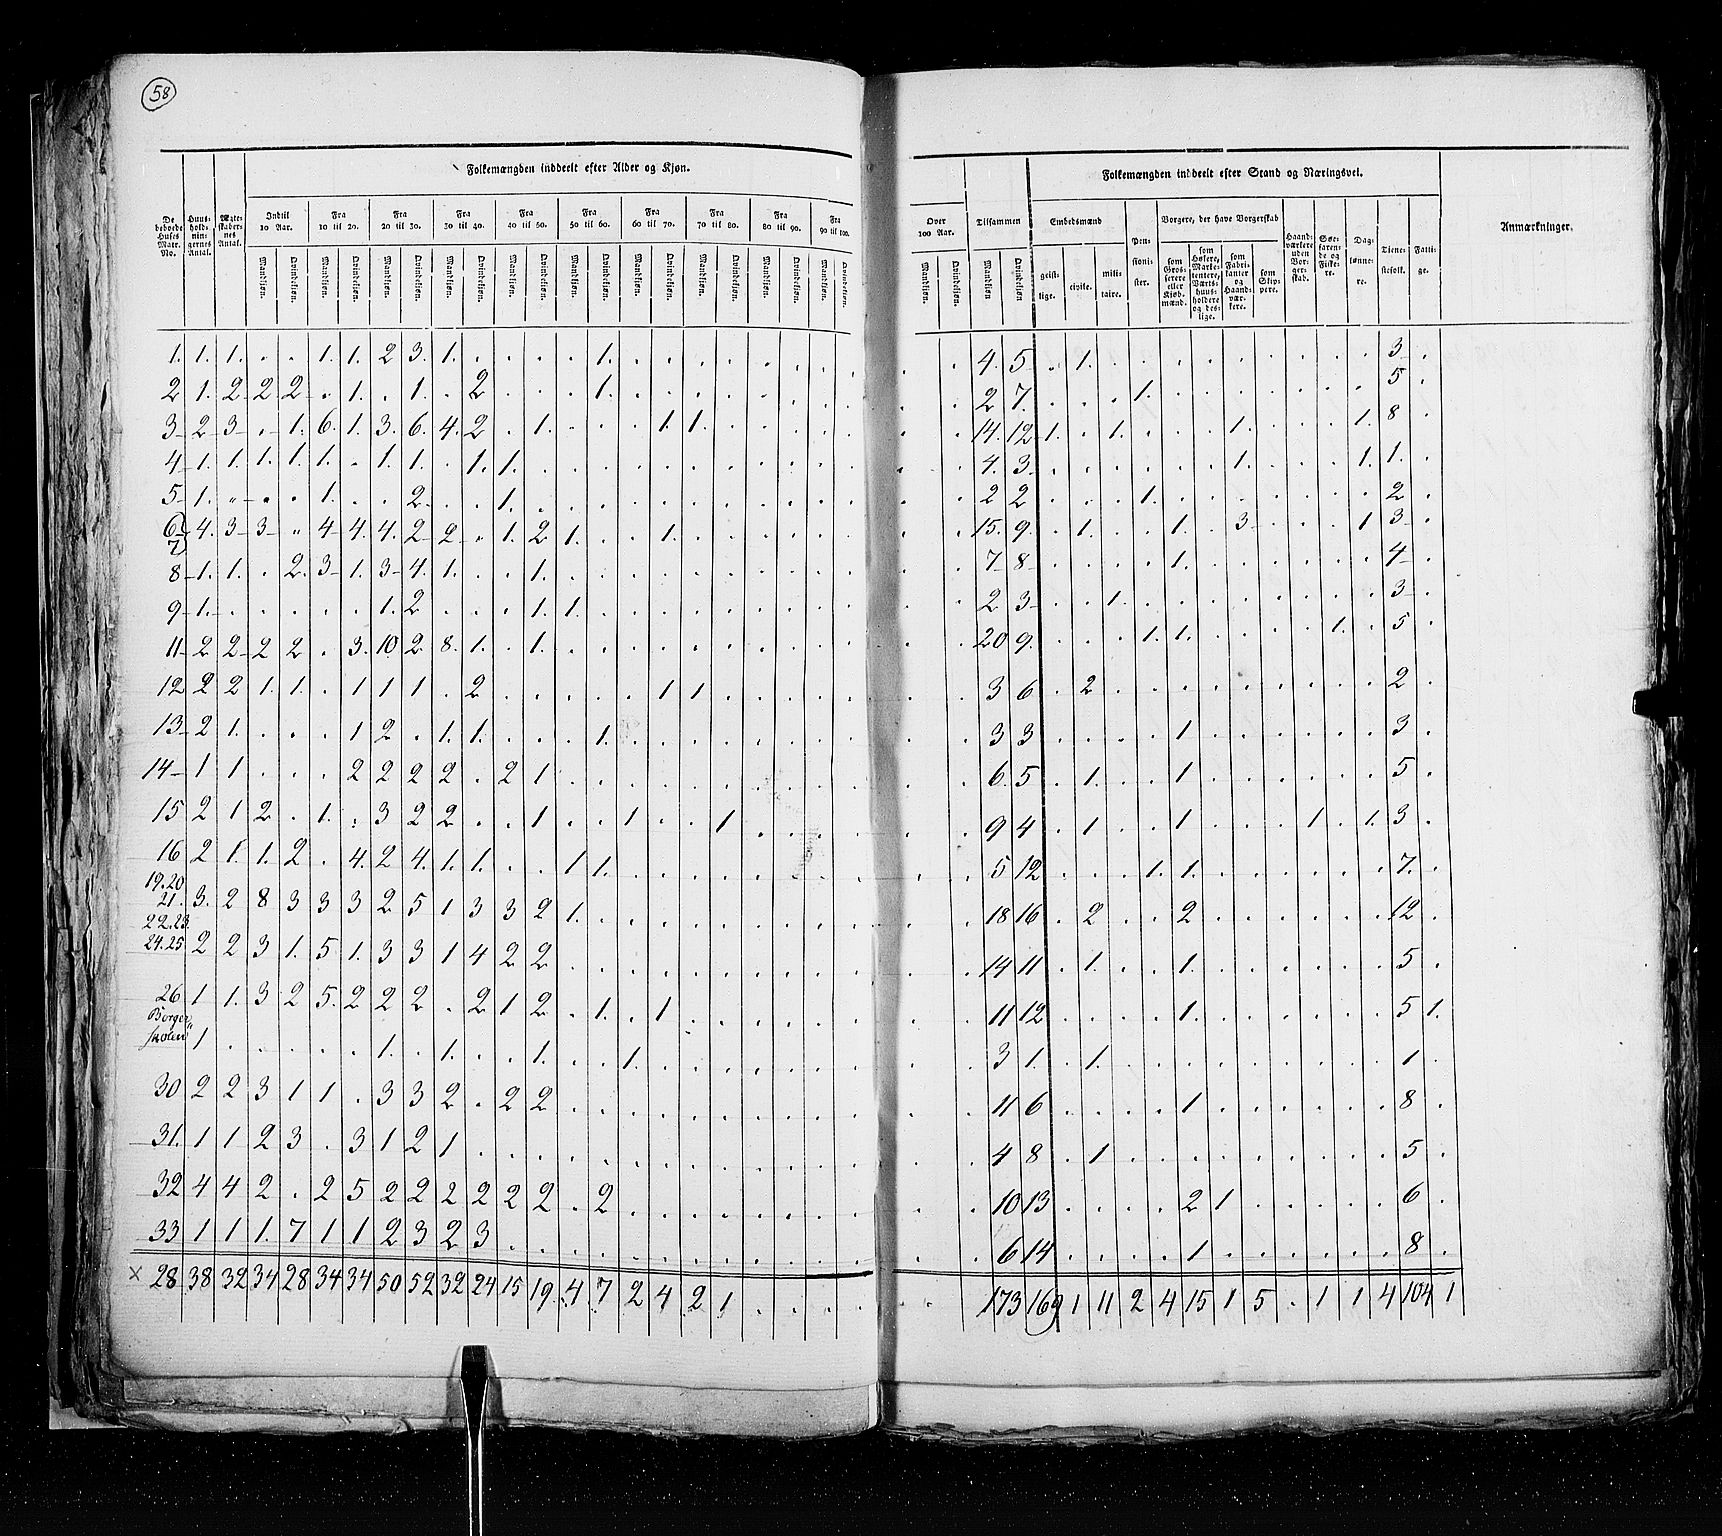 58
Folkemængden inddeelt efter Alder og Kjøn.
Folkemængden inddeelt efter Stand og Næringsvei.
De beboede Huses Matr. No. | Huusholdningernes Antal. | Ægteskabernes Antal. | Indtil 10 Aar. | Fra 10 til 20. | Fra 20 til 30. | Fra 30 til 40. | Fra 40 til 50. | Fra 50 til 60. | Fra 60 til 70. | Fra 70 til 80. | Fra 80 til 90. | Fra 90 til 100. | Over 100 Aar. | Tilsammen | Embedsmænd | Pensionister. | Borgere, der have Borgerskab | Haandværkere uden Borgerskab. | Søefarende og Fiskere. | Daglønnere. | Tjenestefolk. | Fattige. | Anmærkninger.
Mandkjøn. | Qvindekjøn. | Mandkjøn. | Qvindekjøn. | Mandkjøn. | Qvindekjøn. | Mandkjøn. | Qvindekjøn. | Mandkjøn. | Qvindekjøn. | Mandkjøn. | Qvindekjøn. | Mandkjøn. | Qvindekjøn. | Mandkjøn. | Qvindekjøn. | Mandkjøn. | Qvindekjøn. | Mandkjøn. | Qvindekjøn. | Mandkjøn. | Qvindekjøn. | Mandkjøn | Qvindekjøn | geistlige. | civile. | militaire. | som Grosserere eller Kjøbmænd. | som Høkere, Marketentere, Værtshuusholdere og deslige. | som Fabrikanter og Haandværkere. | som Skippere.
1. 1. 1. . . 1. 1. 2 3. 1. . . . . 1. . . . . . . . . . . 4. 5 . 1. . . . . . . . . . 3 .
2 1. 2 2 2 . 1. . 1. . 2 . . . 1. . . . . . . . . . . 2 7. . . . 1. . . . . . . . 5 .
3 2 3 . 1. 6. 1. 3. 6. 4. 2 . 1. . . . 1. 1. . . . . . . . 14. 12 1. . 1. . . . 1. . . . 1. 8 .
4 1. 1. 1. 1. 1. . 1. 1. . 1. 1. . . . . . . . . . . . . . 4. 3. . . . . . . 1. . . . 1. 1. .
5 1. " . . 1. . . 2 . . 1. . . . . . . . . . . . . . 2 2 . . . 1. . . . . . . . 2 .
6 7 4. 3 3 " 4 4. 4. 2 2 . 1. 2 1. . . 1. . . . . . . . . 15. 9. . 1. . . 1. . 3 . . . 1 3 .
8 1. 1. . 2. 3 1. 3 4. 1. . . 1. . . . . . . . . . . . . 7 8 . . . . 1. . . . . . . 4 .
9 1. . . . . . 1. 2 . . . 1. 1. . . . . . . . . . . . 2 3 . . 1. . . . . . . . . 3 .
11 2 2 2 2 . 3. 10 2 8. 1. . 1. . . . . . . . . . . . . 20 9. . . . 1. 1. . . . . 1. . 5 .
12 2 2 1. 1. . 1 1 1 . 2 . . . . . 1 1 . . . . . . . 3 6 . 2 . . . . . . . . . 2 .
13 2 1. . . . 1 2 . 1. 1. . . . 1. . . . . . . . . . . 3 3 . . . . 1 . . . . . . 3 .
14 1 1 . . . 2 2 2 2 . 2 1 . . . . . . . . . . . . 6. 5 . 1. . . 1 . . . . . . 5 .
15 2 1 2 . 1. . 3 2 2 . . 1 . . 1 . . 1 . . . . . . 9 4 . 1 . . 1. . . . 1 . 1. 3 .
16 2 1. 1. 2 . 4. 2 4. 1. 1. . . 1 1. . . . . . . . . . . 5 12 . . . 1. 1. . . . . . . 7. .
19.20
21. 3. 2 8 3 3 3 2 5 1 3 3 2 1. . . . . . . . . . . . 18 16 . 2 . . 2 . . . . . . 12 .
22.23.
24.25 2 2 3 1. 5 1. 3 3 1 4 2 2 . . . . . . . . . . . . 14 11 . 1. . . 1. . . . . . . 5 .
26 1 1. 3 2 5. 2 2 2 . 2 1 2 . 1. . 1 . . . . . . . . 11 12 . . . . 1. . . . . . . 5 1.
Borgerskolen 1 . . . . . . 1. . 1. . . 1. . . 1. . . . . . . . . 3 1. . 1. . . . . . . . . . 1 .
30 2 2 3 1 1 . 3 3 2 . 2 2 . . . . . . . . . . . . 11 6 . . . . 1 . . . . . . 8 .
31. 1 1 2 3 . 3 1 2 1 . . . . . . . . . . . . . . . 4 8 . 1 . . . . . . . . . 5 .
32 4 4 2 . 2 5 2 2 2 2 2 2 . 2 . . . . . . . . . . 10 13 . . . . 2 1 . . . . . 6 .
33 1 1 1. 7 1 1 2 3 2 3 . . . . . . . . . . . . . . 6 14 . . . . 1 . . . . . . 8 .
x 28 38 32 34 28 34 34 50 52 32 24 15 19. 4 7 2 4 2 1 . . . . . . 173 169 1 11 2 4 15 1 5 . 1 1 4 104 1